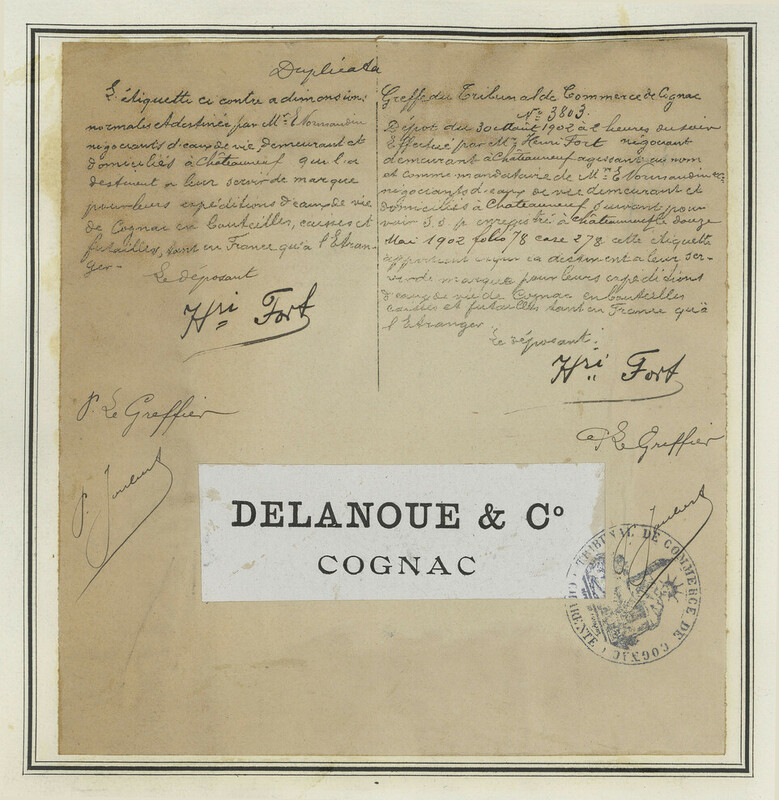 Duplicata
L'étiquette ci contre a dimensions
normales et destinée par Mrs E Normandin
négociants d'eaux de vie, demeurant et
domiciliés à Châteauneuf qui la
destinent a leur servir de marque
pour leurs expéditions d'eaux de vie
de Cognac en bouteilles, caisses et
futailles, tant en France qu'à l'Etran-
ger-
Le déposant
Hri Fort
P. Le Greffier
P. Joubert
Greffe du Tribunal de Commerce de Cognac
No 3803.
Dépot du 30 Août 1902 à 2 heures du soir
Effectué par Mr Henri Fort négociant
demeurant à Châteauneuf agissant au nom
et comme mandataire de Mrs E Normandin &
négociants d'eaux de vie demeurant et
domiciliés à Châteauneuf, suivant pou-
voir S.S.P. enregistré à Châteauneuf le douze
Mai 1902 folio 78 case 278. cette étiquette
appartient à qui la destinent a leur ser-
vir de marque pour leurs expéditions
d'eaux de vie de Cognac en bouteilles
caisses et futailles tant en France qu'à
l'Etranger
Le déposant:
Hri Fort
Le Greffier
Joubert
DELANOUE & Co
COGNAC
TRIBUNAL DE COMMERCE DE COGNAC (CHARENTE)